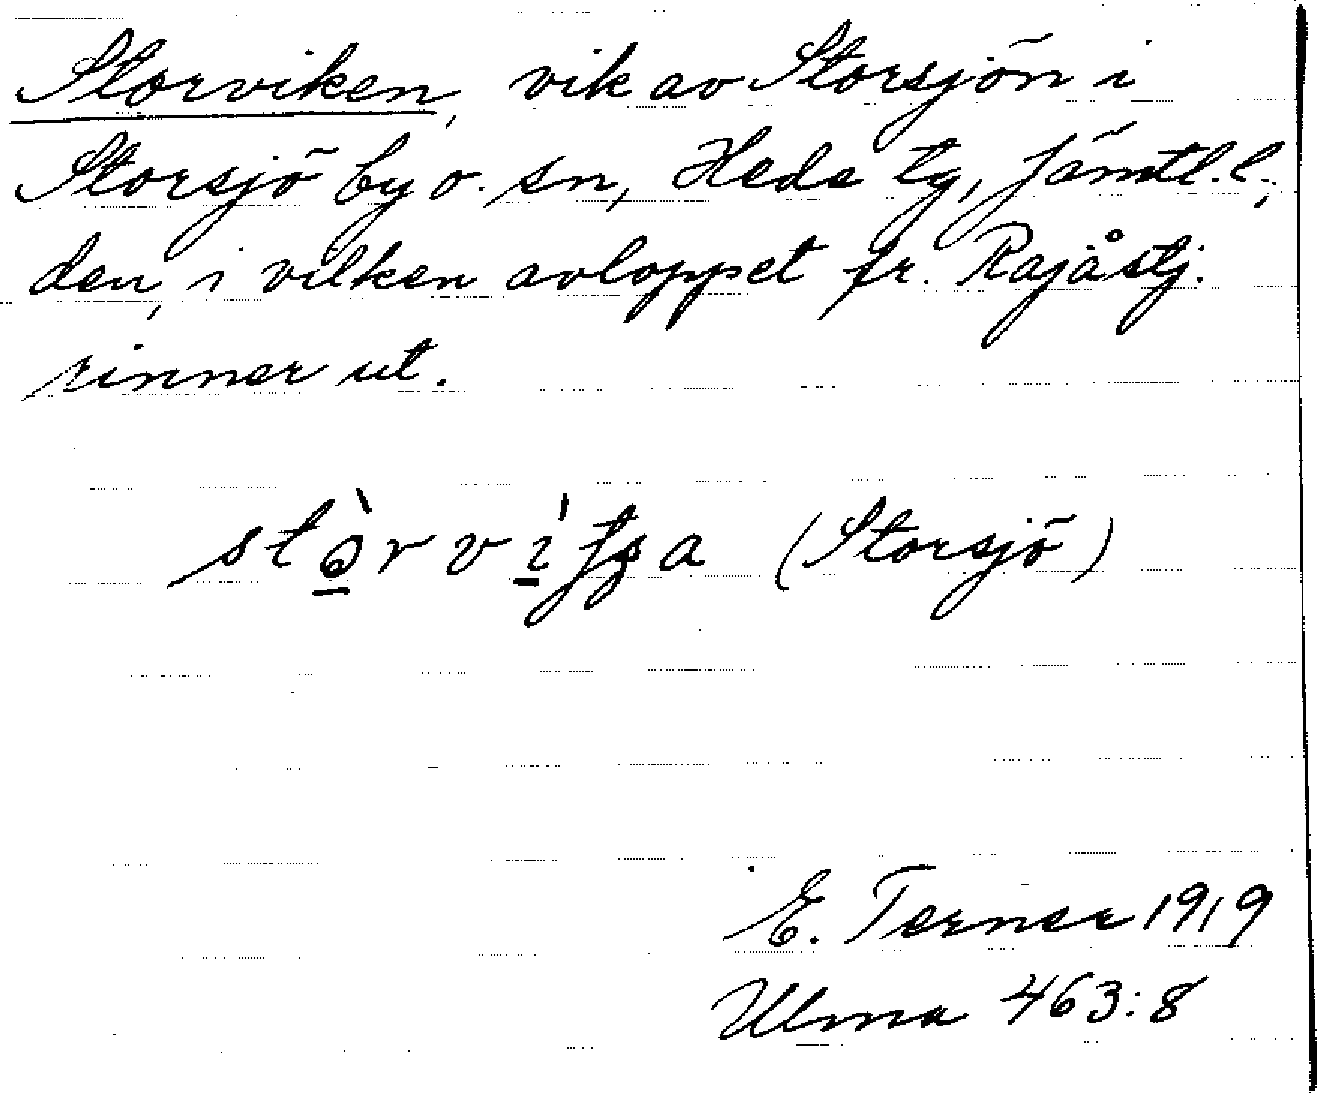 Storviken, vik av Storsjön i
Storsjö by o. sn, Heds tg, Jämtl. l.;
den, i vilken avloppet fr. Rajåstj.
rinner ut.
(Storsjö)
E. Terner 1919
Ulma 463:8